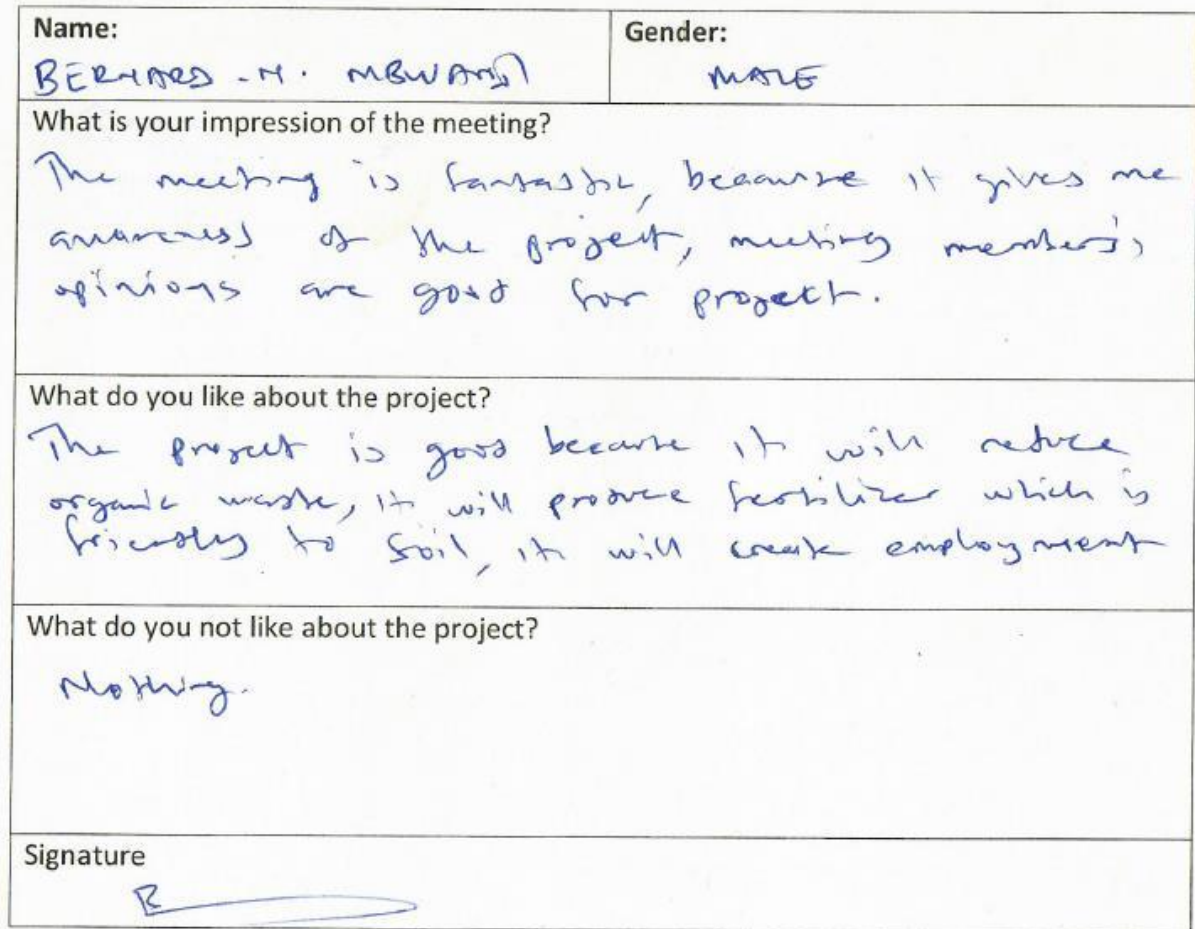 Name:
Gender:
BERNARD - M. MBWAMBO
MALE
What is your impression of the meeting?
The meeting is fantastic, because it gives me
awareness of the project, meeting members'
opinions are good for project.
What do you like about the project?
The project is good because it will reduce
organic waste, it will produce fertilizer which is
friendly to soil, it will create employment
What do you not like about the project?
Nothing.
Signature